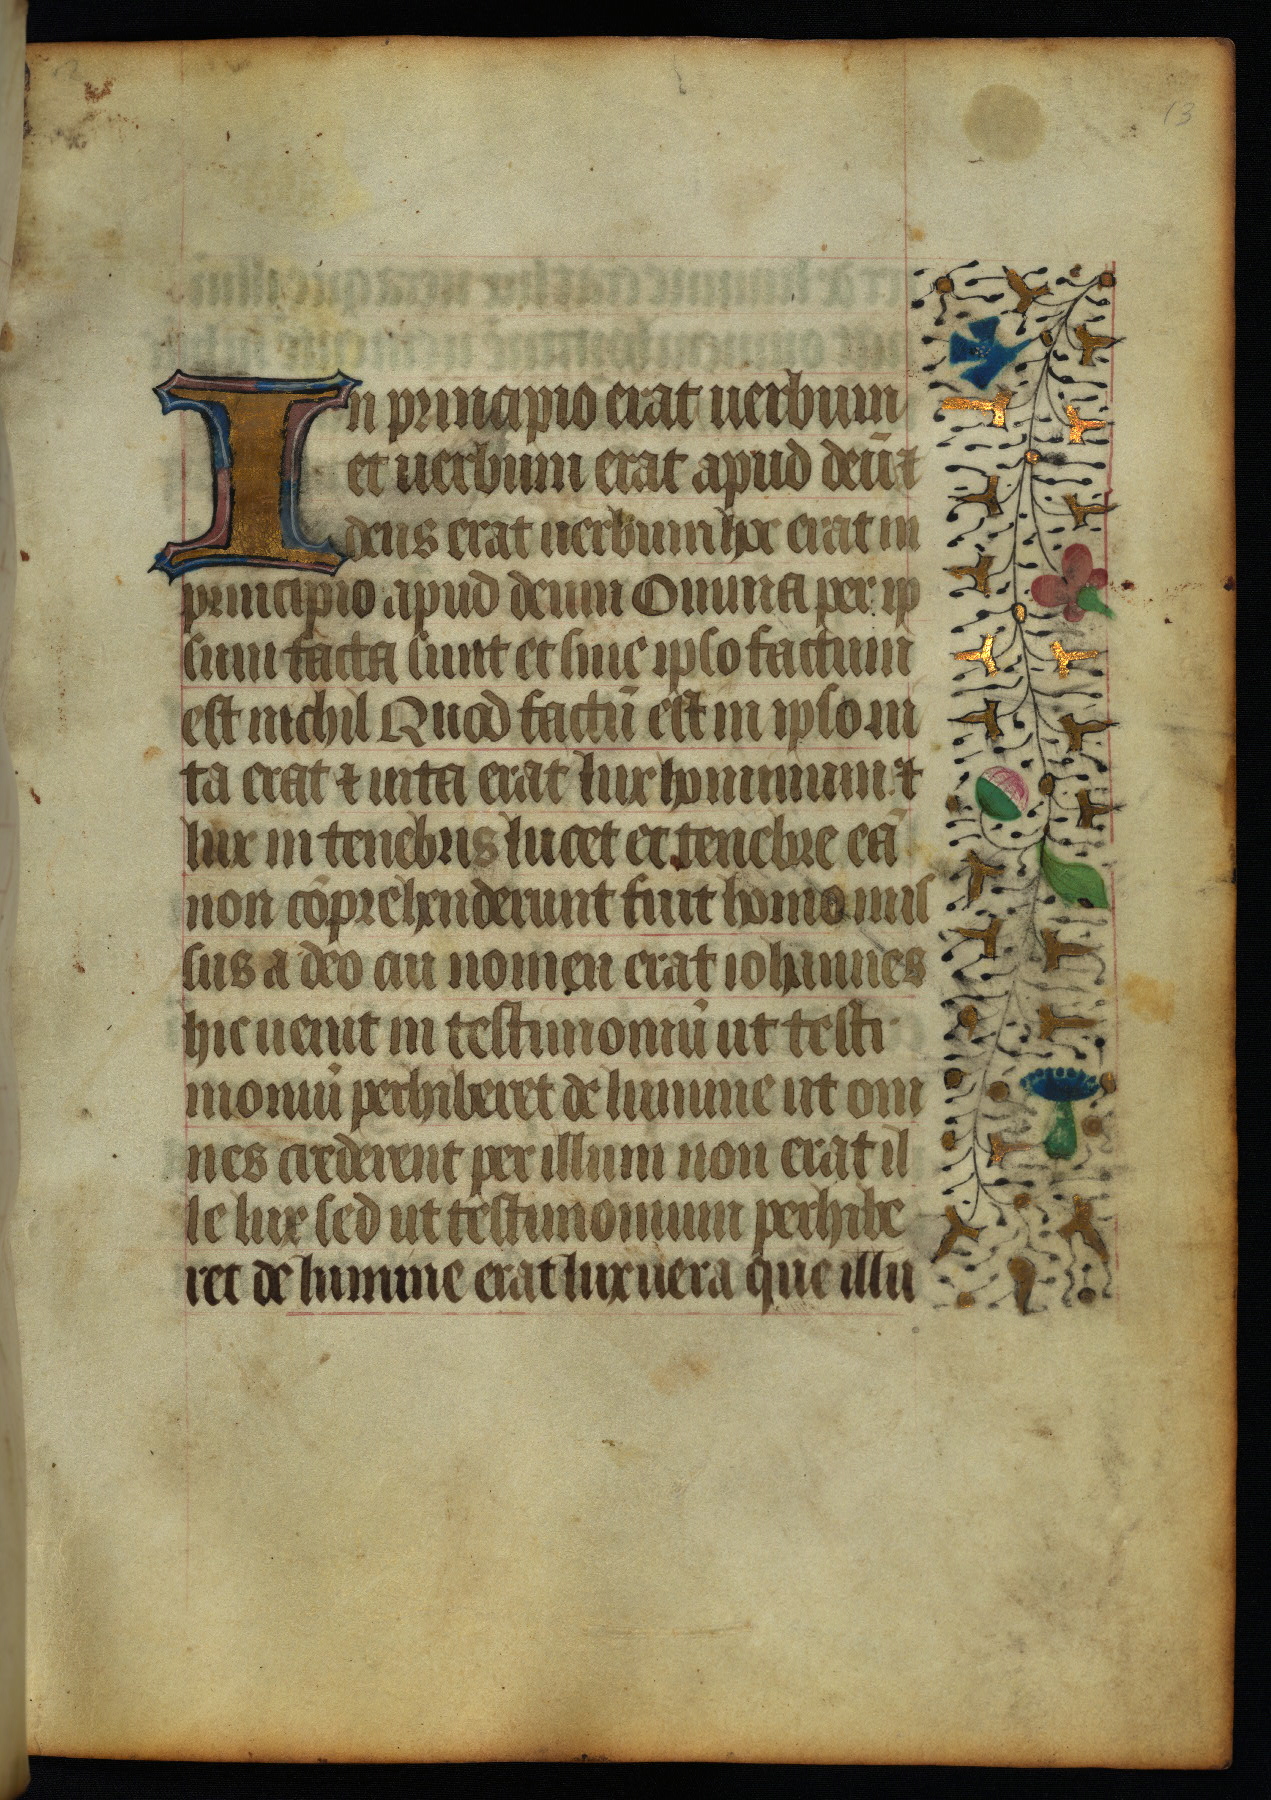 13
In principio erat uerbum
et uerbum erat apud deū ⁊
deus erat uerbum hoc erat in
principio apud deum Omnia per ip
sum facta sunt et sine ipso factum
est nichil Quod factū est in ipso ui
ta erat ⁊ uita erat lux hominum ⁊
lux in tenebris lucet et tenebre eā
non cōprehenderunt fuit homo mis
sus a deo cui nomen erat iohannes
hic uenit in testimoniū ut testi
moniū perhiberet de lumine ut om
nes crederent per illum non erat il
le lux sed ut testimonium perhibe
ret de lumine erat lux uera que illu